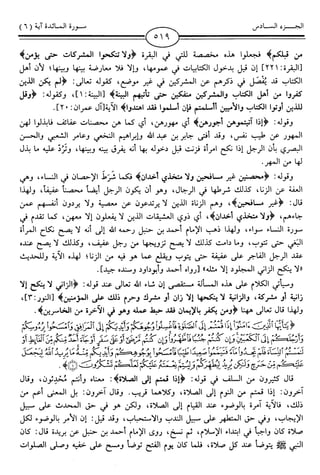 الجزء السادس
٥١٩
سورة المائدة آية (٦)
من قبلكم﴾ فجعلوا هذه مخصصة للتي في البقرة ﴿ولا تنكحوا المشركات حتى يؤمن﴾
[البقرة: ٢٢١] إن قيل بدخول الكتابيات في عمومها، وإلا فلا معارضة بينها وبينها؛ لأن أهل
الكتاب قد يُفْصَل في ذكرهم عن المشركين في غير موضع، كقوله تعالى: ﴿لم يكن الذين
كفروا من أهل الكتاب والمشركين منفكين حتى تأتيهم البينة﴾ [البينة:١]، وكقوله: ﴿وقل
للذين أوتوا الكتاب والأميين أأسلمتم فإن أسلموا فقد اهتدوا﴾ الآية[آل عمران: ٢٠].
وقوله: ﴿إذا آتيتموهن أجورهن﴾ أي مهورهن، أي كما هن محصنات عفائف فابذلوا لهن
المهور عن طيب نفس، وقد أفتى جابر بن عبد الله وإبراهيم النخعي وعامر الشعبي والحسن
البصري بأن الرجل إذا نكح امرأة فزنت قبل دخوله بها أنه يفرق بينه وبينها، وتَرُدُّ عليه ما بذل
لها من المهر.
وقوله: ﴿محصنين غير مسافحين ولا متخذي أخدان﴾ فكما شَرَطَ الإحصان في النساء، وهي
العفة عن الزنا، كذلك شرطها في الرجال، وهو أن يكون الرجل أيضاً محصناً عفيفاً، ولهذا
قال: ﴿غير مسافحين﴾، وهم الزناة الذين لا يرتدعون عن معصية ولا يردون أنفسهم عمن
جاءهم، ﴿ولا متخذي أخدان﴾، أي ذوي العشيقات الذين لا يفعلون إلا معهن، كما تقدم في
سورة النساء سواء، ولهذا ذهب الإمام أحمد بن حنبل رحمه الله إلى أنه لا يصح نكاح المرأة
البَغِي حتى تتوب، وما دامت كذلك لا يصح تزويجها من رجل عفيف، وكذلك لا يصح عنده
عقد الرجل الفاجر على عفيفة حتى يتوب ويقلع عما هو فيه من الزنا؛ لهذه الآية وللحديث
«لا ينكح الزاني المجلود إلا مثله» [رواه أحمد وأبوداود وسنده جيد].
وسيأتي الكلام على هذه المسألة مستقصى إن شاء الله تعالى عند قوله: ﴿الزاني لا ينكح إلا
زانية أو مشركة، والزانية لا ينكحها إلا زان أو مشرك وحرم ذلك على المؤمنين﴾ [النور:٣]،
ولهذا قال تعالى ههنا ﴿ومن يكفر بالإيمان فقد حبط عمله وهو في الآخرة من الخاسرين﴾.
﴿يَا أَيُّهَا الَّذِينَ آمَنُوا إِذَا قُمْتُمْ إِلَى الصَّلَاةِ فَاغْسِلُوا وُجُوهَكُمْ وَأَيْدِيَكُمْ إِلَى الْمَرَافِقِ وَامْسَحُوا بِرُءُوسِكُمْ
وَأَرْجُلَكُمْ إِلَى الْكَعْبَيْنِ وَإِنْ كُنْتُمْ جُنُبًا فَاطَّهَّرُوا وَإِنْ كُنْتُمْ مَرْضَى أَوْ عَلَى سَفَرٍ أَوْ جَاءَ أَحَدٌ مِنْكُمْ مِنَ الْغَائِطِ أَوْ
لَامَسْتُمُ النِّسَاءَ فَلَمْ تَجِدُوا مَاءً فَتَيَمَّمُوا صَعِيدًا طَيِّبًا فَامْسَحُوا بِوُجُوهِكُمْ وَأَيْدِيكُمْ مِنْهُ مَا يُرِيدُ اللَّهُ لِيَجْعَلَ
عَلَيْكُمْ مِنْ حَرَجٍ وَلَكِنْ يُرِيدُ لِيُطَهِّرَكُمْ وَلِيُتِمَّ نِعْمَتَهُ عَلَيْكُمْ لَعَلَّكُمْ تَشْكُرُونَ﴾.
قال كثيرون من السلف في قوله: ﴿إذا قمتم إلى الصلاة﴾: معناه وأنتم مُحْدِثون، وقال
آخرون: إذا قمتم من النوم إلى الصلاة، وكلاهما قريب. وقال آخرون: بل المعنى أعم من
ذلك، فالآية آمرة بالوضوء عند القيام إلى الصلاة، ولكن هو في حق المحدث على سبيل
الإيجاب، وفي حق المتطهر على سبيل الندب والاستحباب، وقد قيل: إن الأمر بالوضوء لكل
صلاة كان واجباً في ابتداء الإسلام، ثم نسخ، روى الإمام أحمد بن حنبل عن بريدة قال: كان
النبي ﷺ يتوضأ عند كل صلاة، فلما كان يوم الفتح توضأ ومسح على خفيه وصلى الصلوات